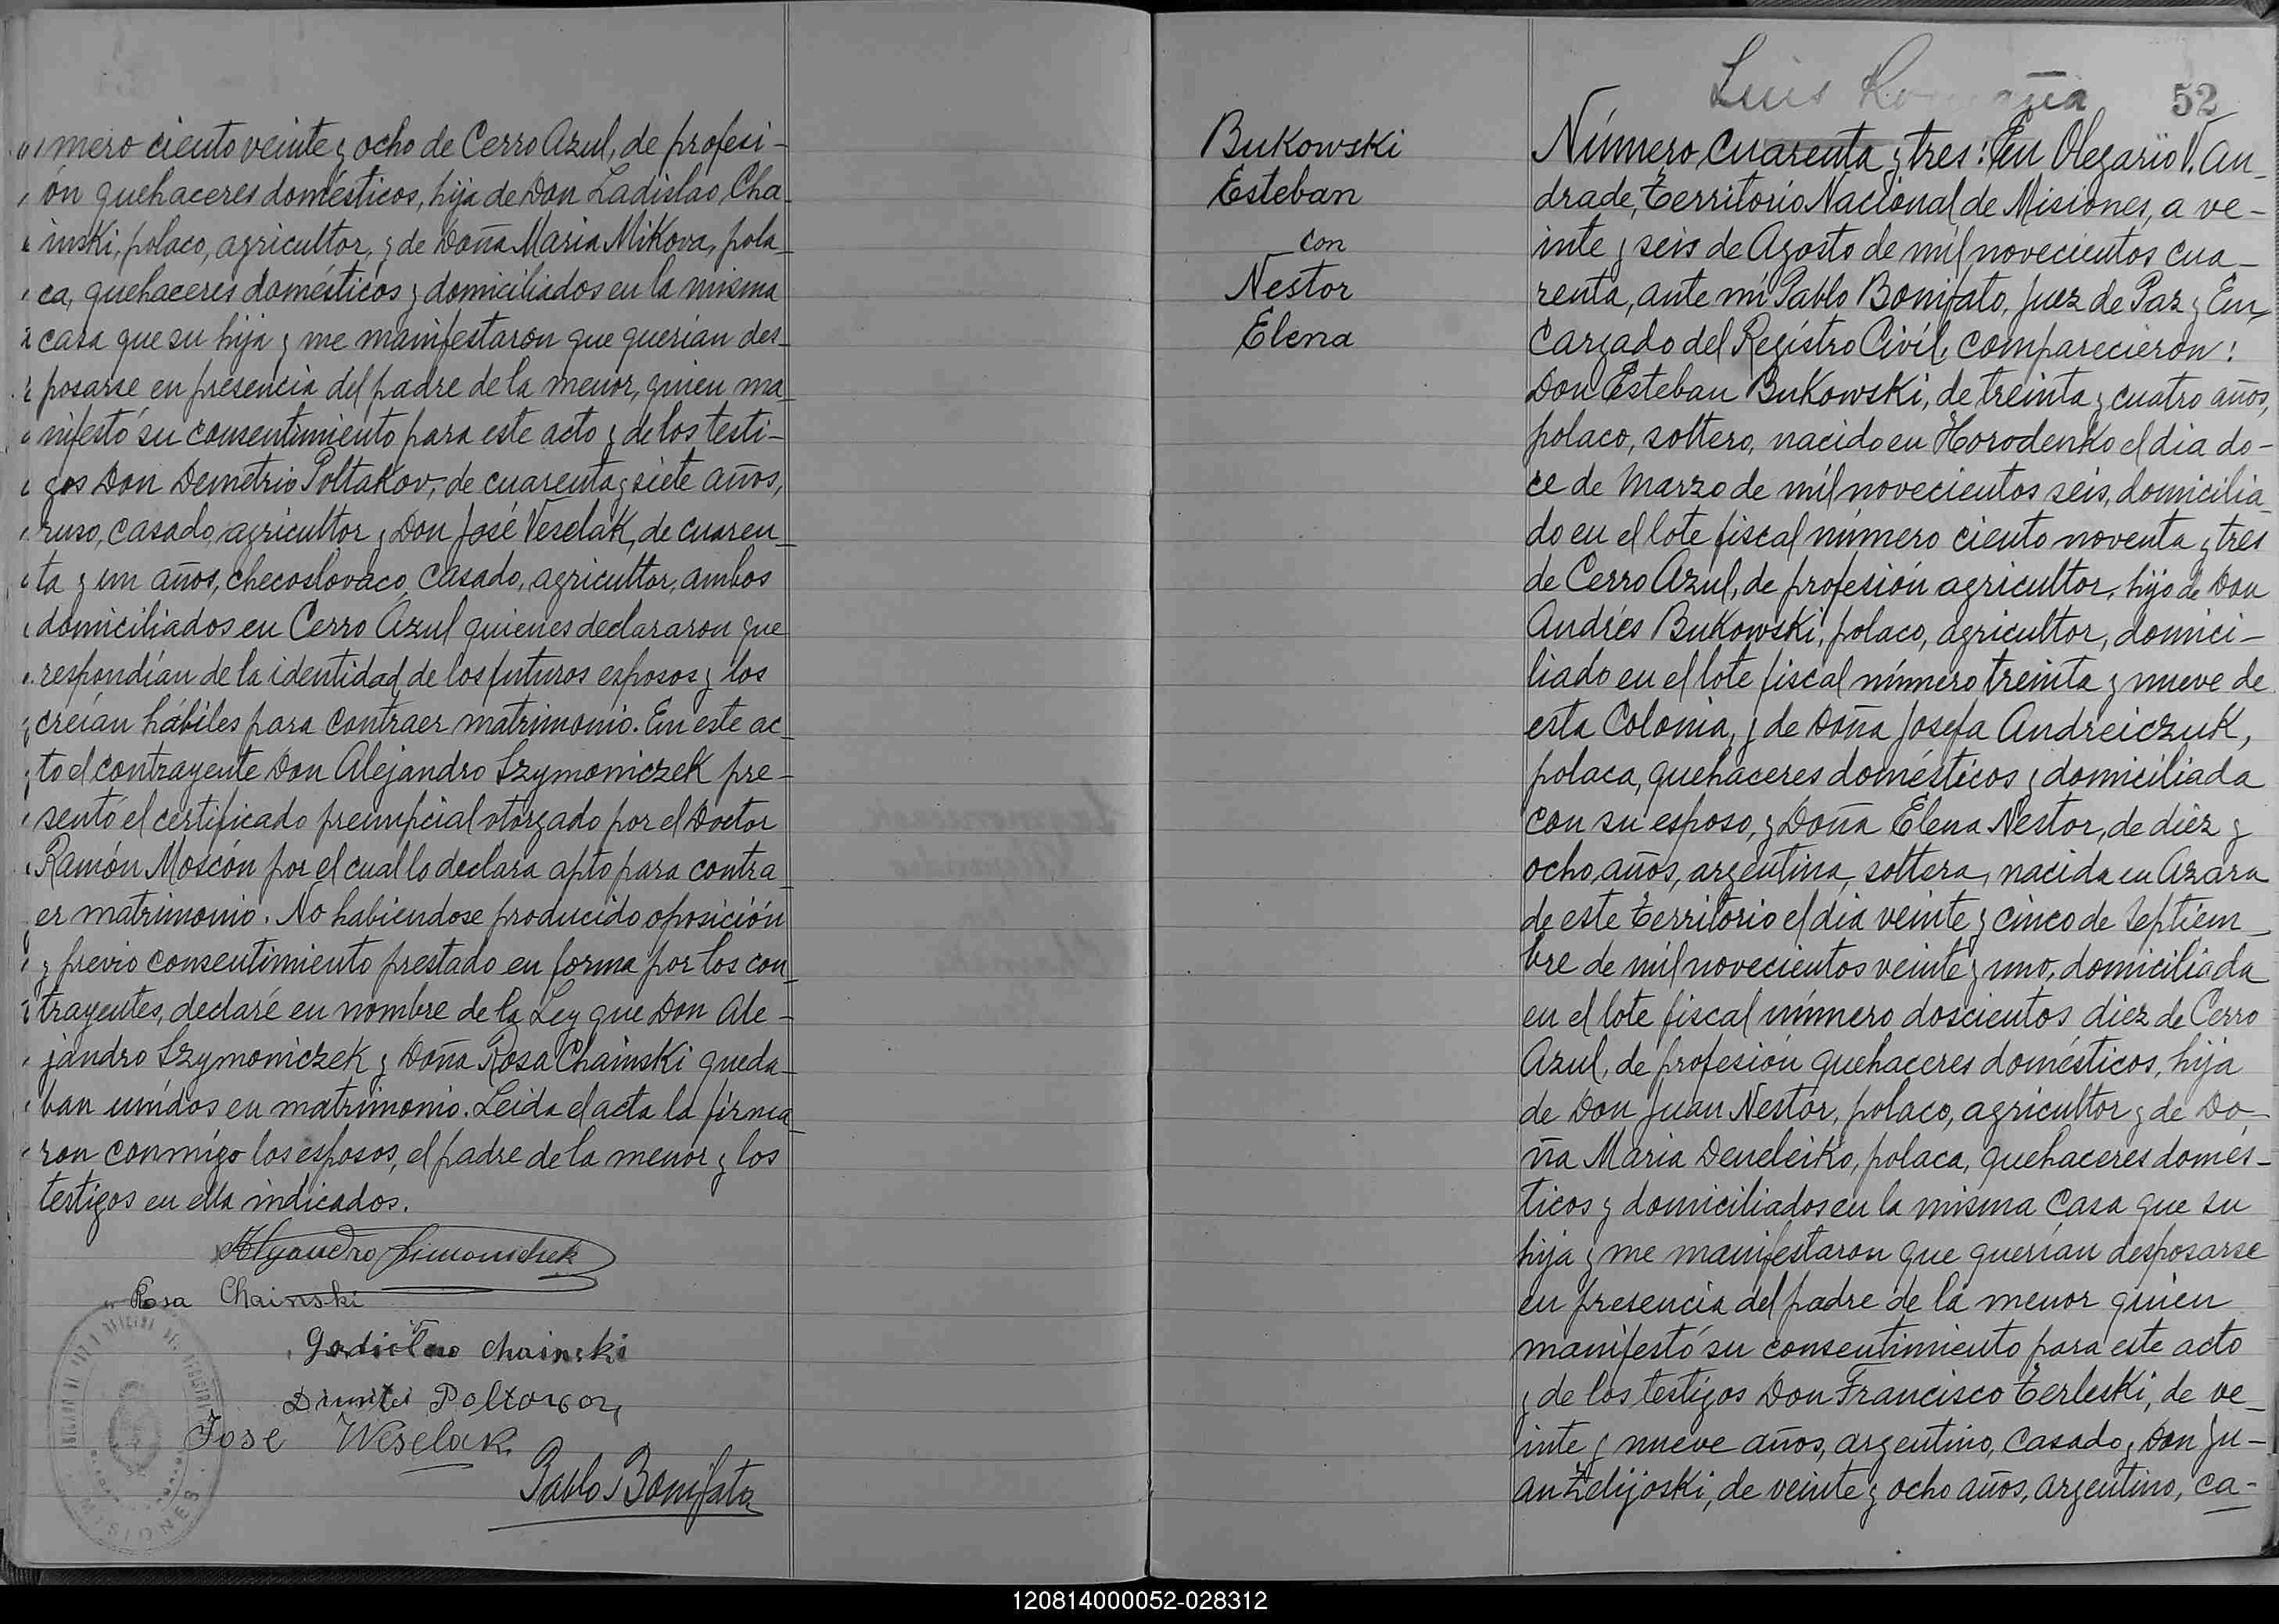 mero ciento veinte y ocho de Cerro Azul, de profesi-
ón quehaceres domésticos, hija de Don Ladislao Cha-
inski, polaco, agricultor, y de Doña Maria Mikova, pola-
ca, quehaceres domésticos y domiciliados en la misma
casa que su hija y me manifestaron que querían des-
posarse en presencia del padre de la menor, quien ma-
nifestó su consentimiento para este acto y de los testi-
gos Don Demetrio Poltakov, de cuarenta y siete años,
ruso, casado, agricultor y Don José Veselak, de cuaren-
ta y un años, checoslovaco, casado, agricultor, ambos
domiciliados en Cerro Azul quienes declararon que
respondían de la identidad de los futuros esposos y los
creían hábiles para contraer matrimonio. En este ac-
to el contrayente Don Alejandro Szymoniczek pre-
sentó el certificado prenupcial otorgado por el Doctor
Ramón Moscón por el cual lo declara apto para contra-
er matrimonio. No habiendose producido oposición
y previo consentimiento prestado en forma por los con-
trayentes, declaré en nombre de la Ley que Don Ale-
jandro Szymoniczek y Doña Rosa Chainski queda-
ban unidos en matrimonio. Leida el acta la firma-
ron conmigo los esposos, el padre de la menor y los
testigos en ella indicados.
Rosa Chainski
Chainski
Jose Weselak
Pablo Bonifato
MISIONES
Luis
52
Bukowski
Esteban
con
Nestor
Elena
Número cuarenta y tres: En Olegario V. An-
drade, Territorio Nacional de Misiones, a ve-
inte y seis de Agosto de mil novecientos cua-
renta, ante mí Pablo Bonifato, Juez de Paz y En-
cargado del Registro Civil, comparecieron:
Don Esteban Bukowski, de treinta y cuatro años,
polaco, soltero, nacido en Horodenko el dia do-
ce de Marzo de mil novecientos seis, domicilia-
do en el lote fiscal número ciento noventa y tres
de Cerro Azul, de profesión agricultor, hijo de Don
Andrés Bukowski, polaco, agricultor, domici-
liado en el lote fiscal número treinta y nueve de
esta Colonia, y de Doña Josefa Andreiczuk,
polaca, quehaceres domésticos y domiciliada
con su esposo, y Doña Elena Nestor, de diez y
ocho años, argentina, soltera, nacida en Azara
de este Territorio el dia veinte y cinco de Septiem-
bre de mil novecientos veinte y uno, domiciliada
en el lote fiscal número doscientos diez de Cerro
Azul, de profesión quehaceres domésticos, hija
de Don Juan Nestor, polaco, agricultor y de Do-
ña Maria Deneleiko, polaca, quehaceres domés-
ticos y domiciliados en la misma casa que su
hija y me manifestaron que querían desposarse
en presencia del padre de la menor quien
manifestó su consentimiento para este acto
y de los testigos Don Francisco Terleski, de ve-
inte y nueve años, argentino, casado y Don Ju-
an Zdijoski, de veinte y ocho años, argentino, ca-
120814000052-028312